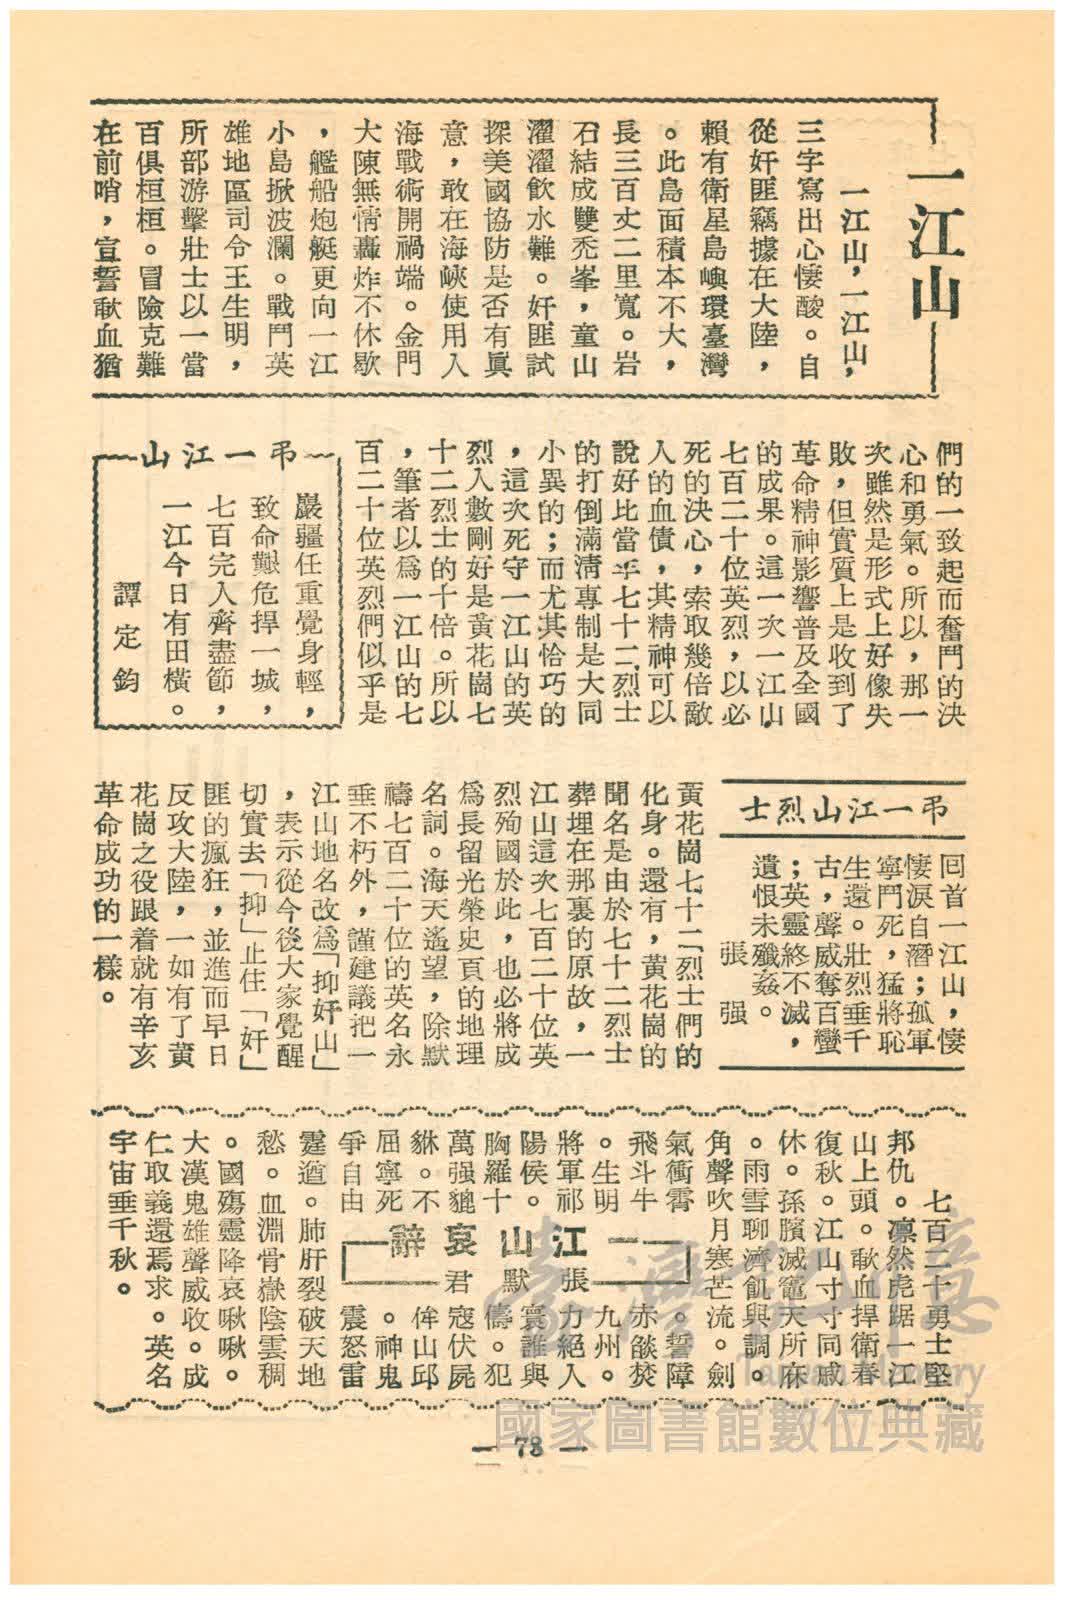 一江山
一江山，一江山，
三字寫出心悽酸。自
從奸匪竊據在大陸，
賴有衛星島嶼環臺灣
。此島面積本不大，
長三百丈二里寬。岩
石結成雙禿峯，童山
濯濯飲水難。奸匪試
探美國協防是否有眞
意，敢在海峽使用人
海戰術開禍端。金門
大陳無情轟炸不休歇
，艦船炮艇更向一江
小島掀波瀾。戰鬥英
雄地區司令王生明，
所部游擊壯士以一當
百俱桓桓。冒險克難
在前哨，宣誓歃血猶
們的一致起而奮鬥的決
心和勇氣。所以，那一
次雖然是形式上好像失
敗，但實質上是收到了
革命精神影響普及全國
的成果。這一次一江山
七百二十位英烈，以必
死的決心，索取幾倍敵
人的血債，其精神可以
說好比當年七十二烈士
的打倒滿清專制是大同
小異的；而尤其恰巧的
，這次死守一江山的英
烈人數剛好是黃花崗七
十二烈士的十倍。所以
，筆者以爲一江山的七
百二十位英烈們似乎是
弔一江山
巖疆任重覺身輕，
致命艱危捍一城，
七百完人齊盡節，
一江今日有田橫。
譚定鈞
弔一江山烈士
回首一江山，悽
悽淚自潛；孤軍
寧鬥死，猛將恥
生還。壯烈垂千
古，聲威奪百蠻
；英靈終不滅，
遺恨未殲姦。
張强
黃花崗七十二烈士們的
化身。還有，黃花崗的
聞名是由於七十二烈士
葬埋在那裏的原故，一
江山這次七百二十位英
烈殉國於此，也必將成
爲長留光榮史頁的地理
名詞。海天遙望，除默
禱七百二十位的英名永
垂不朽外，謹建議把一
江山地名改爲「抑奸山」
，表示從今後大家覺醒
切實去「抑」止住「奸」
匪的瘋狂，並進而早日
反攻大陸，一如有了黃
花崗之役跟着就有辛亥
革命成功的一樣。
一江山哀辭
張默君
七百二十勇士堅
邦仇。凛然虎踞一江
山上頭。歃血捍衛春
復秋。江山寸寸同戚
休。孫臏滅竈天所庥
。雨雪聊濟飢與調。
角聲吹月寒芒流。劍
氣衝霄。誓障
飛斗牛赤燄焚
。生明九州。
將軍祁力絕人
陽侯。寰誰與
胸羅十儔。犯
萬强貔寇伏屍
貅。不侔山邱
屈寧死。神鬼
爭自由震怒雷
霆遒。肺肝裂破天地
愁。血淵骨嶽陰雲稠
。國殤靈降哀啾啾。
大漢鬼雄聲威收。成
仁取義還焉求。英名
宇宙垂千秋。
— 78 —
臺灣記憶
Taiwan Memory
國家圖書館數位典藏